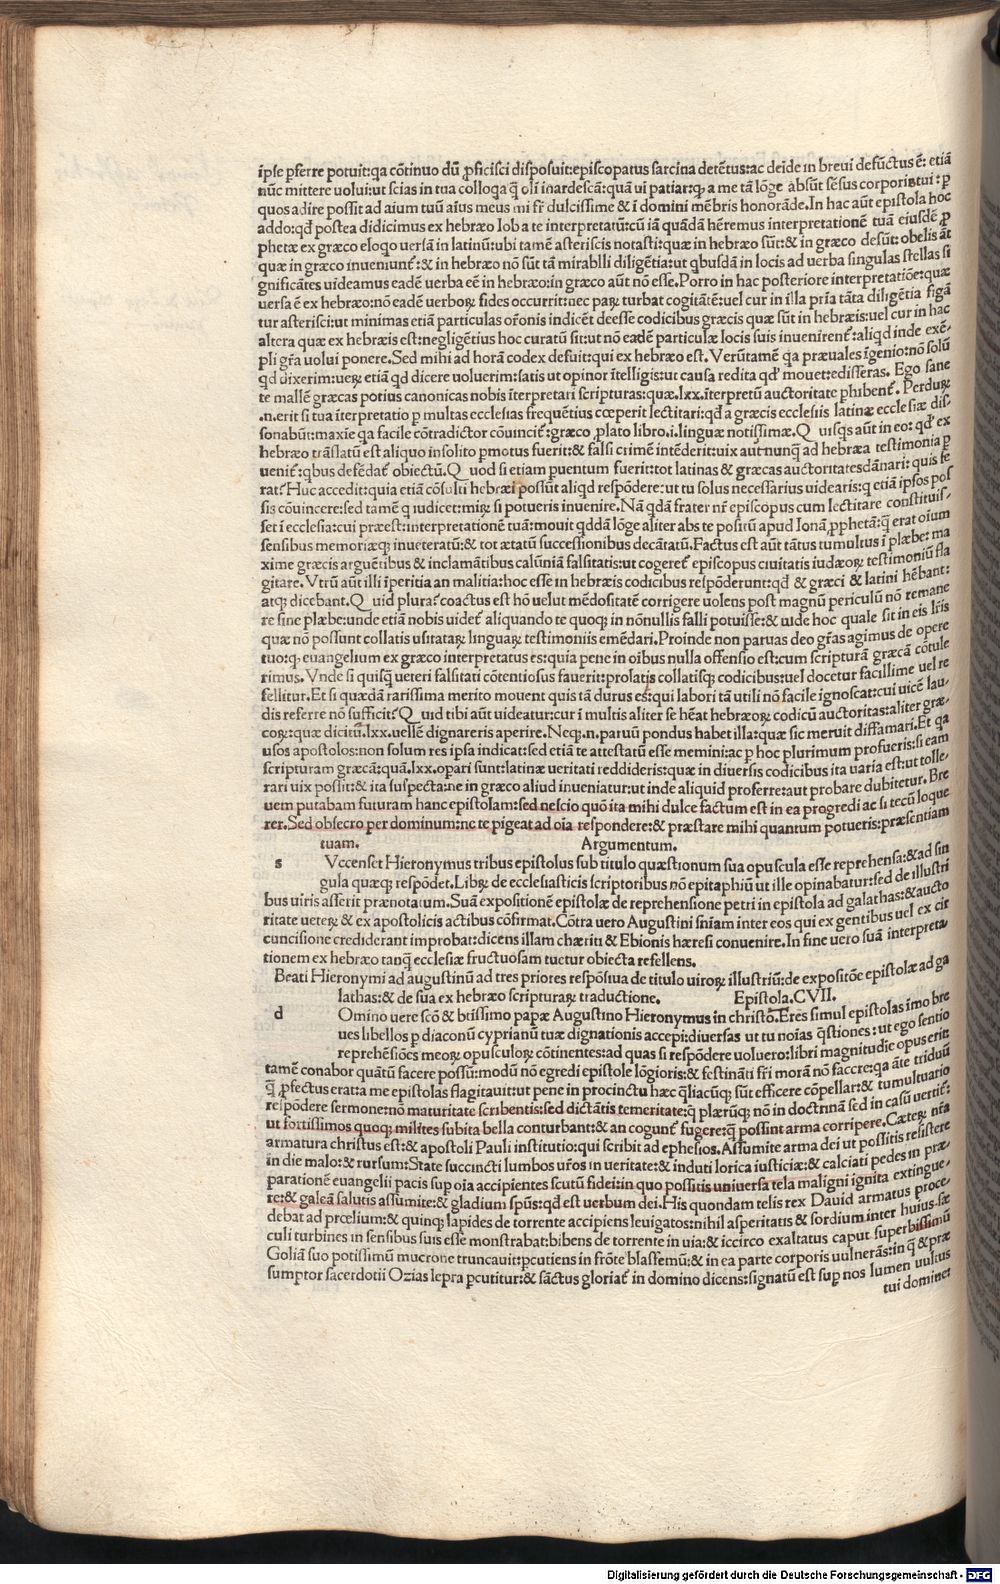 ipse pferre potuit:qa cōtinuo dū ꝓficisci disposuit:episcopatus sarcina detētus:ac deīde in breui defūctus ē: etiā
nūc mittere uolui:ut scias in tua colloqa q̄ oli inardescā:quā ui patiar:qꝫ a me tā lōge absūt sēsus corporis tui: p
quos adire possit ad aium tuū aius meus mi fr̄ dulcissime & ī domini mēbris honorāde.In hac aūt epistola hoc
addo:qđ postea didicimus ex hebræo Iob a te interpretatū:cū iā quādā hēremus interpretationē tuā eiusdē ꝓ
phetæ ex græco eloqo uersā in latinū:ubi tamē asteriscis notasti:quæ in hebræo sūt:& in græco desūt: obelis aūt
quæ in græco inueniunt̄:& in hebræo nō sūt tā mirabili diligētia:ut qbusdā in locis ad uerba singulas stellas si
gnificātes uideamus eadē uerba eē in hebræo:in græco aūt nō esse.Porro in hac posteriore interpretatiōe:quæ
uersa ē ex hebræo:nō eadē uerboꝝ fides occurrit:nec paꝝ turbat cogitātē:uel cur in illa pria tāta diligētia figā
tur asterisci:ut minimas etiā particulas or̄onis indicēt deesse codicibus græcis quæ sūt in hebræis:uel cur in hac
altera quæ ex hebræis est:negligētius hoc curatū sit:ut nō eædē particulæ locis suis inuenirent̄:aliqd inde exē-
pli gr̄a uolui ponere.Sed mihi ad horā codex defuit:qui ex hebræo est.Verūtamē qa præuales īgenio:nō solū
qd dixerim:ueꝝ etiā qd dicere uoluerim:satis ut opinor ītelligis:ut causa redita qđ mouet:edisseras. Ego sane
te mallē græcas potius canonicas nobis īterpretari scripturas:quæ.lxx.īterpretū auctoritate phibent̄. Perduꝝ
.n.erit si tua īterpretatio p multas ecclesias frequētius cœperit lectitari:qđ a græcis ecclesiis latinæ ecclesiæ dis-
sonabūt:maxīe qa facile cōtradictor cōuincit̄:græco ꝓlato libro.i.linguæ notissimæ.Q uisqs aūt in eo: qđ ex
hebræo trāslatū est aliquo insolito pmotus fuerit:& falsi crimē intēderit:uix aut nunq̄ ad hebræa testimonia p
uenit̄:qbus defēdat̄ obiectū.Q uod si etiam puentum fuerit:tot latinas & græcas auctoritates dānari: quis fe
rat? Huc accedit:quia etiā cōsulti hebræi possūt aliqd respōdere:ut tu solus necessarius uidearis:q etiā ipsos pos
sis cōuincere:sed tamē q iudicet:miꝝ si potueris inuenire.Nā qdā frater nr̄ episcopus cum lectitare constituis-
set ī ecclesia:cui præest:interpretationē tuā:mouit qddā lōge aliter abs te positū apud Ionā ꝓphetā:q̄ erat oium
sensibus memoriæqꝫ inueteratū:& tot ætatū successionibus decātatū.Factus est aūt tātus tumultus ī plæbe: ma
xime græcis arguētibus & inclamātibus calūniā falsitatis:ut cogeret̄ episcopus ciuitatis iudæoꝝ testimoniū fla
gitare. Vtrū aūt illi īperitia an malitia:hoc esse in hebræis codicibus respōderunt:qd & græci & latini hēbant:
atqꝫ dicebant.Q uid plura? coactus est hō uelut mēdositatē corrigere uolens post magnū periculū nō remane
re sine plæbe:unde etiā nobis uidet̄ aliquando te quoqꝫ in nōnullis falli potuisse:& uide hoc quale sit in eis lr̄is
quæ nō possunt collatis usitataꝝ linguaꝝ testimoniis emēdari.Proinde non paruas deo gr̄as agimus de opere
tuo:qꝫ euangelium ex græco interpretatus es:quia pene in oībus nulla offensio est:cum scripturā græcā cōtule
rimus. Vnde si quisqꝫ ueteri falsitati cōtentiosus fauerit:prolatis collatisqꝫ codicibus:uel docetur facillime uel re
fellitur.Et si quædā rarissima merito mouent quis tā durus est:qui labori tā utili nō facile ignoscat:cui uicē lau-
dis referre nō sufficit? Q uid tibi aūt uideatur:cur ī multis aliter se hēat hebræoꝝ codicū auctoritas:aliter græ-
coꝝ:quæ dicitū.lxx.uellē dignareris aperire.Neqꝫ.n.paruū pondus habet illa:quæ sic meruit diffamari.Et qa
usos apostolos:non solum res ipsa indicat:sed etiā te attestatū esse memini:ac p hoc plurimum profueris:si eam
scripturam græcā:quā.lxx.opari sunt:latinæ ueritati reddideris:quæ in diuersis codicibus ita uaria est:ut tolle-
rari uix possit:& ita suspecta:ne in græco aliud inueniatur:ut inde aliquid proferre:aut probare dubitetur. Bre
uem putabam futuram hanc epistolam:sed nescio quō ita mihi dulce factum est in ea progredi ac si tecū loque
rer.Sed obsecro per dominum:ne te pigeat ad oīa respondere:& præstare mihi quantum potueris:præsentiam
tuam. Argumentum.
s Vccenset Hieronymus tribus epistolus sub titulo quæstionum sua opuscula esse reprehensa:&ad sin
gula quæqꝫ respōdet.Libꝝ de ecclesiasticis scriptoribus nō epitaphiū ut ille opinabatur:sed de illustri
bus uiris asserit prænotatum.Suā expositionē epistolæ de reprehensione petri in epistola ad galathas:&aucto
ritate ueteꝝ & ex apostolicis actibus cōfirmat.Cōtra uero Augustini sn̄iam inter eos qui ex gentibus uel ex cir
cuncisione crediderant improbat:dicens illam chæriti & Ebionis hæresi conuenire.In fine uero suā interpreta
tionem ex hebræo tanqꝫ ecclesiæ fructuosam tuetur obiecta refellens.
Beati Hieronymi ad augustinū ad tres priores respōsiua de titulo uiroꝝ illustriū:de expositōe epistolæ ad ga
lathas:& de sua ex hebræo scripturaꝝ traductione. Epistola.CVII.
d Omino uere scō & btissimo papæ Augustino Hieronymus in christō.Eres simul epistolas imo bre
ues libellos p diaconū cyprianū tuæ dignationis accepi:diuersas ut tu noīas q̄stiones: ut ego sentio
reprehēsiōes meoꝝ opusculoꝝ cōtinentes:ad quas si respōdere uoluero:libri magnitudīe opus erit:
tamē conabor quātū facere possū:modū nō egredi epistole lōgioris:& festināti fr̄i morā nō facere:qa āte triduū
q̄ ꝓfectus erat:a me epistolas flagitauit:ut pene in procinctu hæc q̄liacūqꝫ sūt efficere cōpellar:& tumultuario
respōdere sermone:nō maturitate scribentis:sed dictātis temeritate:q̄ plærūqꝫ nō in doctrinā sed in casū uertit̄:
ut fortissimos quoqꝫ milites subita bella conturbant:& an cogunt̄ fugere:q̄ possint arma corripere.Cæteꝝ nr̄a
armatura christus est:& apostoli Pauli institutio:qui scribit ad ephesios.Assumite arma dei ut possitis resistere
in die malo:& rursum:State succincti lumbos ur̄os in ueritate:& induti lorica iusticiæ:& calciati pedes in præ-
parationē euangelii pacis sup oīa accipientes scutū fidei:in quo possitis uniuersa tela maligni ignita extingue-
re:& galeā salutis assumite:& gladium spūs:qđ est uerbum dei.His quondam telis rex Dauid armatus proce-
debat ad prœlium:& quinqꝫ lapides de torrente accipiens leuigatos:nihil asperitatis & sordium inter huius sæ
culi turbines in sensibus suis esse monstrabat:bibens de torrente in uia:& iccirco exaltatus caput superbissimū
Goliā suo potissimū mucrone truncauit:pcutiens in frōte blasfemū:& in ea parte corporis uulnerās:in q̄ & præ
sumptor sacerdotii Ozias lepra pcutitur:& sāctus gloriat̄ in domino dicens:signatū est sup nos lumen uultus
tui domine:
Digitalisierung gefördert durch die Deutsche Forschungsgemeinschaft - DFG